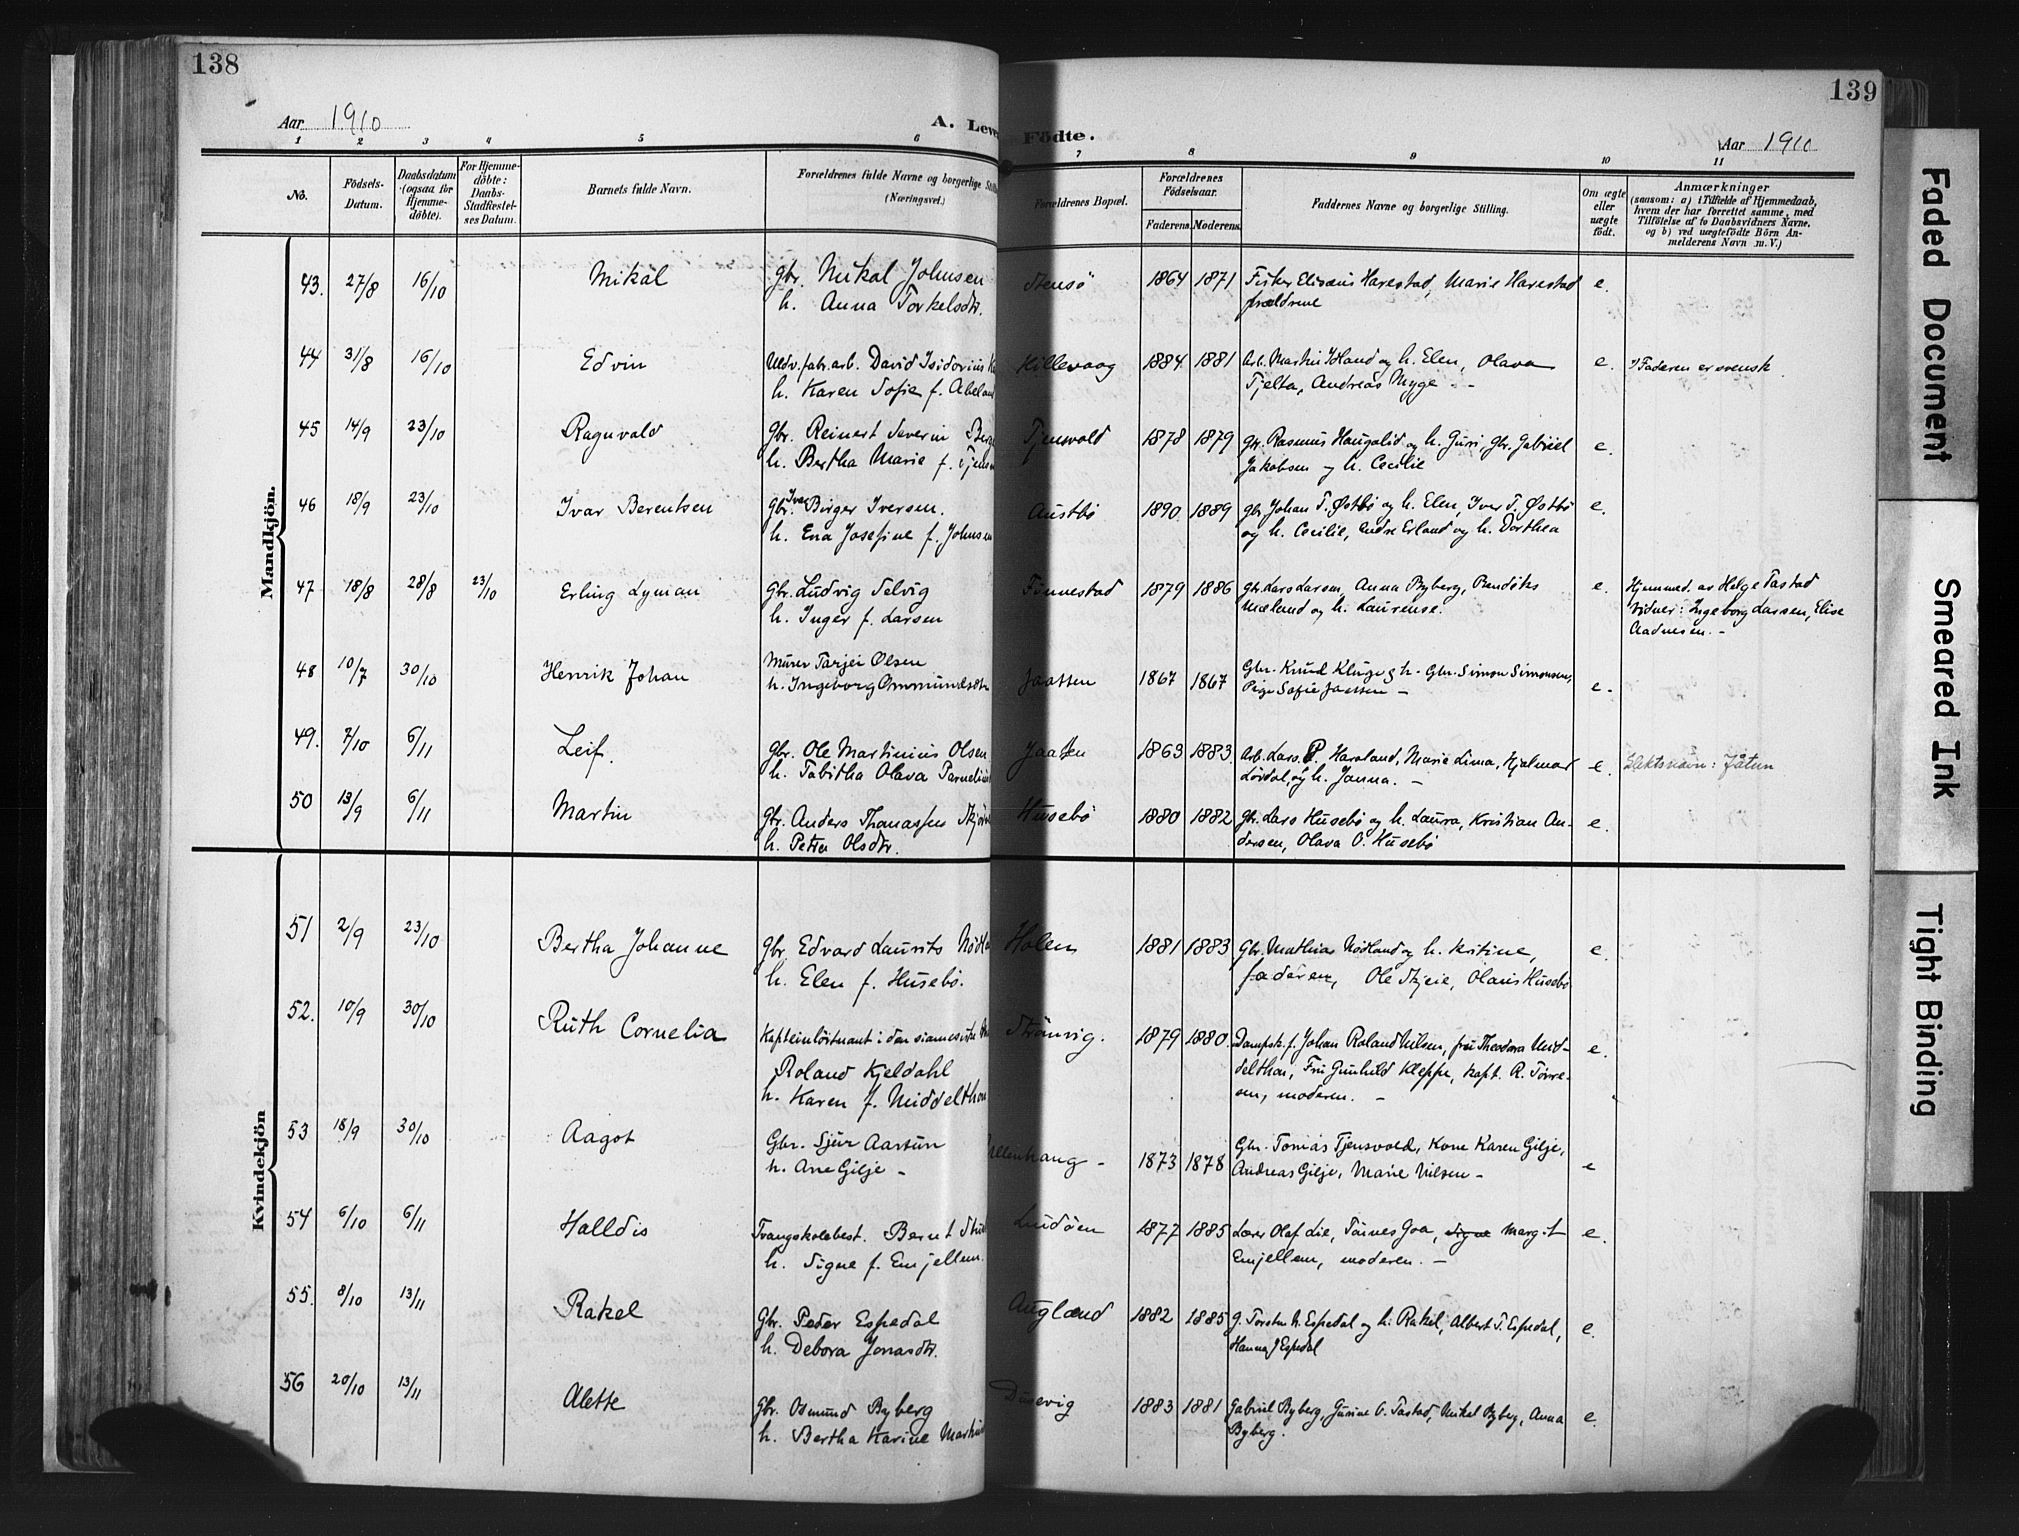 138
Aar 1910
A. Leve
1 2 3 4 5 6
No.
Födsels-
Datum.
Daabsdatum
(ogsaa for
Hjemme-
döbte).
For Hjemme-
döbte:
Daabs-
Stadfæstel-
ses Datum.
Barnets fulde Navn.
Forældrenes fulde Navne og borgerlige Stilli
(Næringsvei.)
Mandkjön.
43. 27/8 16/10 Mikal Gbr. Mikal Johnsen
h. Anna Torkelsdtr.
44 31/8 16/10 Edvin Uldv.fabr.arb. David Isidorius K
h. Karen Sofie f. Abeland
45 14/9 23/10 Ragnvald Gbr. Reinert Severin Berg
h. Bertha Marie f. Tjens
46 18/9 23/10 Ivar Berentsen Gbr. Ivar Birger Iversen.
h. Ena Josefine f. Johnsen
47 18/8 28/8 23/10 Erling Lyman Gbr. Ludvig Selvig
h. Inger f. Larsen
48 10/7 30/10 Henrik Johan Murer Tarjei Olsen
h. Ingeborg Ommundsdtr
49. 7/10 6/11 Leif. Gbr. Ole Martinius Olsen
h. Tabitha Olava Parnelius
50 13/9 6/11 Martin Gbr. Anders Thomassen
h. Petra Olsdtr.
Kvindekjön
51 2/9 23/10 Bertha Johanne Gbr. Edvard Laurits Nödla
h. Elen f. Husebö.
52. 10/9 30/10 Ruth Cornelia Kapteinlöitnant i den siamesiske
Roland Kjeldahl
h. Karen f. Middelthon
53 18/9 30/10 Aagot Gbr. Sjur Aartun
h. Ane Gilje -
54 6/10 6/11 Halldis Tvangskolebest. Bernt
h. Signe f. Emjellem.
55. 8/10 13/11 Rakel Gbr. Peder Espedal
h. Debora Jonasdtr.
56 20/10 13/11 Alette Gbr. Osmund Byberg
h. Bertha Karine Martin
139
Födte.
Aar 1910
7 8 9 10 11
Forældrenes Bopæl.
Forældrenes
Födselsaar.
Faderens. Moderens.
Faddernes Navne og borgerlige Stilling.
Om ægte
eller
uægte
født.
Anmærkninger
(saasom: a) i Tilfælde af Hjemmedaab,
hvem der har forrettet samme, med
Tilföielse af to Daabsvidners Navne,
og b) ved uægtefödte Börn An-
melderens Navn m.V.)
Stensö 1864 1871 Fisker Elisæus Harestad, Marie Harestad e.
forældrene
Hillevaag 1884 1881 Arb. Martin Idland og h. Elen, Olava e. Faderen er svensk.
Tjelta, Andreas Myge - -
Tjensvold 1878 1879 Gbr. Rasmus Haugalid og h. Guri, Gbr. Gabriel e.
Jakobsen og h. Cecilie
Austbö 1890 1889 Gbr. Johan T. Østbö og h. Elen, Iver T. Østbö e.
og h. Cecilie, Endre Erland og h. Dorthea
Finnestad 1879 1886 Gbr. Lars Larsen, Anna Byberg, Bendiks e. Hjemmed. av Helge Tastad
Mæland og h. Laurense. Vidner: Ingeborg Larsen, Elise
Aadnesen. -
Jaatten 1867 1867 Gbr. Knud Kluge & h. - Gbr. Simon Simonsen, e.
Pige Sofie Jaatten -
Jaatten 1863 1883. Arb. Lars P. Haraland, Marie Lima, Hjalmar e. Slektsnavn: Jåtun
Lördal, og h. Janna. -
Husebö 1880 1882 Gbr. Lars Husebö og h. Laura, Kristian An- e.
dersen, Olava O. Husebö
Holen 1881 1883 Gbr. Mathias Nödland og h. Kristine, e.
faderen, Ole Skjeie, Olaus Husebö
Strömvig. 1879 1880. Dampsk.f. Johan Roland Nilsen, fru Theodora Mid- e.
delthon, Fru Gunhild Kleppe, kapt. R. Törre-
sen, moderen. -
Ullenhaug - 1873 1878 Gbr. Tomas Tjensvold, Kone Karen Gilje, e
Andreas Gilje, Marie Nilsen -
Lindöen 1877 1885 Lærer Olaf Lie, Tönnes Goa, Signe Margit e.
Emjellem, moderen. -
Augland 1882 1885 G. Torsten N. Espedal og h. Rakel, Albert T. Espedal, e.
Hanna J Espedal
Dusevig 1883 1881 Gabriel Byberg, Gurine O. Tastad, Mikal Byberg, Anna e.
Byberg.
Faded Document
Smeared Ink
Tight Binding